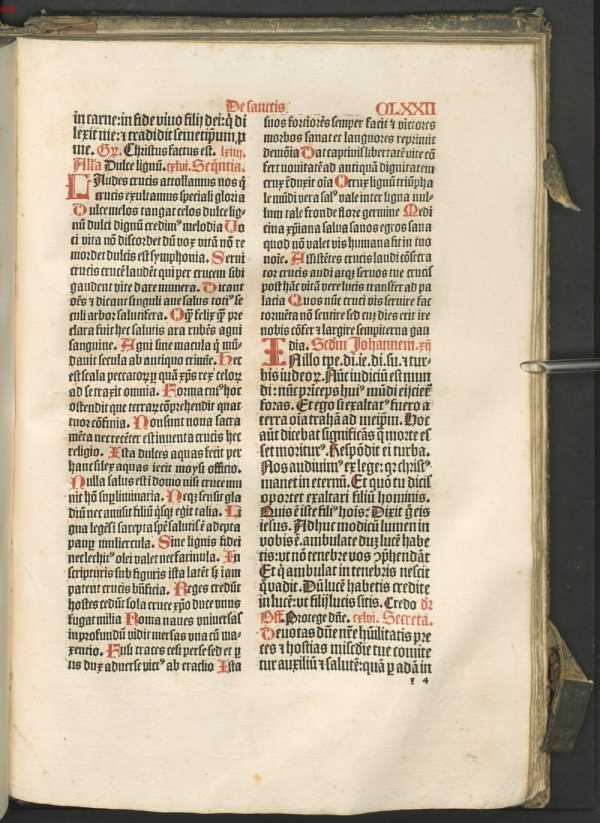 De sanctis
CLXXII
in carne: in fide vivo filij dei: q̃ di
lexit me: ⁊ tradidit semetip̃m ꝑ
me. Gꝛ. Christus factus est. lxiij.
Alla Dulce lignũ. cxlvi. Seq̃ntia.
LAudes crucis attollamus nos q̃
crucis exultamus speciali gloria
Dulce melos tangat celos dulce lig-
nũ dulci dignũ credimꝰ melodia Vo
ci vita nõ discordet dũ vox vitã nõ re
mordet dulcis est symphonia. Serui
crucis crucẽ laudẽt qui per crucem sibi
gaudent vite dare munera. Dicant
oẽs ⁊ dicant singuli aue salus totiꝰ se
culi arbor salutifera. O q̃ felix q̃ pre
clara fuit hec salutis ara rubẽs agni
sanguine. Agni sine macula q̃ mũ-
dauit secula ab antiquo crimĩe. Hec
est scala peccatoꝝ ꝑ quã xp̃s rex celoꝝ
ad se traxit omnia. Forma cuiꝰ hoc
ostendit que terraꝝ cõprehendit quat
tuor cõfinia. Non sunt noua sacra
mẽta nec recẽter est inuenta crucis hec
religio. Ista dulces aquas fecit per
hanc silex aquas iecit moysi officio.
Nulla salus est ĩ domo nisi cruce mu
nit hõ supliminaria. Neqꝫ sensit gla
diũ nec amisit filiũ q̃sqꝫ egit talia. Li
gna legẽs ĩ sarepta spẽ salutis ẽ adepta
pauꝑ muliercula. Sine lignis fidei
nec lechitꝰ olei valet nec farinula. In
scripturis sub figuris ista latẽt sꝫ iam
patent crucis bñficia. Reges credũt
hostes cedũt sola cruce xp̃o duce vnus
fugat milia Roma naues vniuersas
in profundũ vidit mersas vna cũ ma-
xencio. Fusi traces cesi perse sed et ꝑ
tis dux aduerse victꝰ ab eraclio Ista
suos forciorẽs semper facit ⁊ victores
morbos sanat et languores reprimit
demõia Dat captiuis libertatẽ vite cõ
fert nouitatẽ ad antiquã dignitatem
crux ẽduxit oĩa O crux lignũ triũpha
le mũdi vera salꝰ vale inter ligna nul
lum tale fronde flore germine Medi
cina xp̃iana salua sanos egros sana
quod nõ valet vis humana fit in tuo
noĩe. Assistẽtes crucis laudi cõsecra
tor crucis audi atqꝫ seruos tue crucis
post hãc vitã vere lucis transfer ad pa
lacia Quos tuẽ cruci vis seruire fac
tormẽta nõ sentire sed cuʒ dies erit ire
nobis cõfer ⁊ largire sempiterna gau
dia. Scdm Johannem. xij
IN illo tp̃e. di. ie. di. su. ⁊ tur-
bis iudeoꝝ. Nũc iudiciũ est mun
di: nũc princeps huiꝰ mũdi eijcieẽ
foras. Et ego si exaltatꝰ fuero a
terra oĩa trahã ad meip̃m. Hoc
aũt dicebat significãs q̃ morte es
set moriturꝰ. Respõdit ei turba.
Nos audiuimꝰ ex lege: qꝛ christꝰ
manet in eternũ. Et quõ tu dicis
oportet exaltari filiũ hominis.
Quis ẽ iste filiꝰ hoĩs: Dixit g̃ eis
iesus. Adhuc modicũ lumen in
vobis ẽ. ambulate duʒ lucẽ habe
tis: vt nõ tenebre vos cõp̃hendãt
Et q̃ ambulat in tenebris nescit
q̃ vadit. Dũ lucẽ habetis credite
in lucẽ: vt filij lucis sitis. Credo dꝛ
Off. Protege dñe. cxlvi. Secreta.
Deuotas dñe nr̃e hũilitatis pre
ces ⁊ hostias mĩscdie tue comite
tur auxiliũ ⁊ salutẽ: quã ꝑ adã in
ꝛ 4